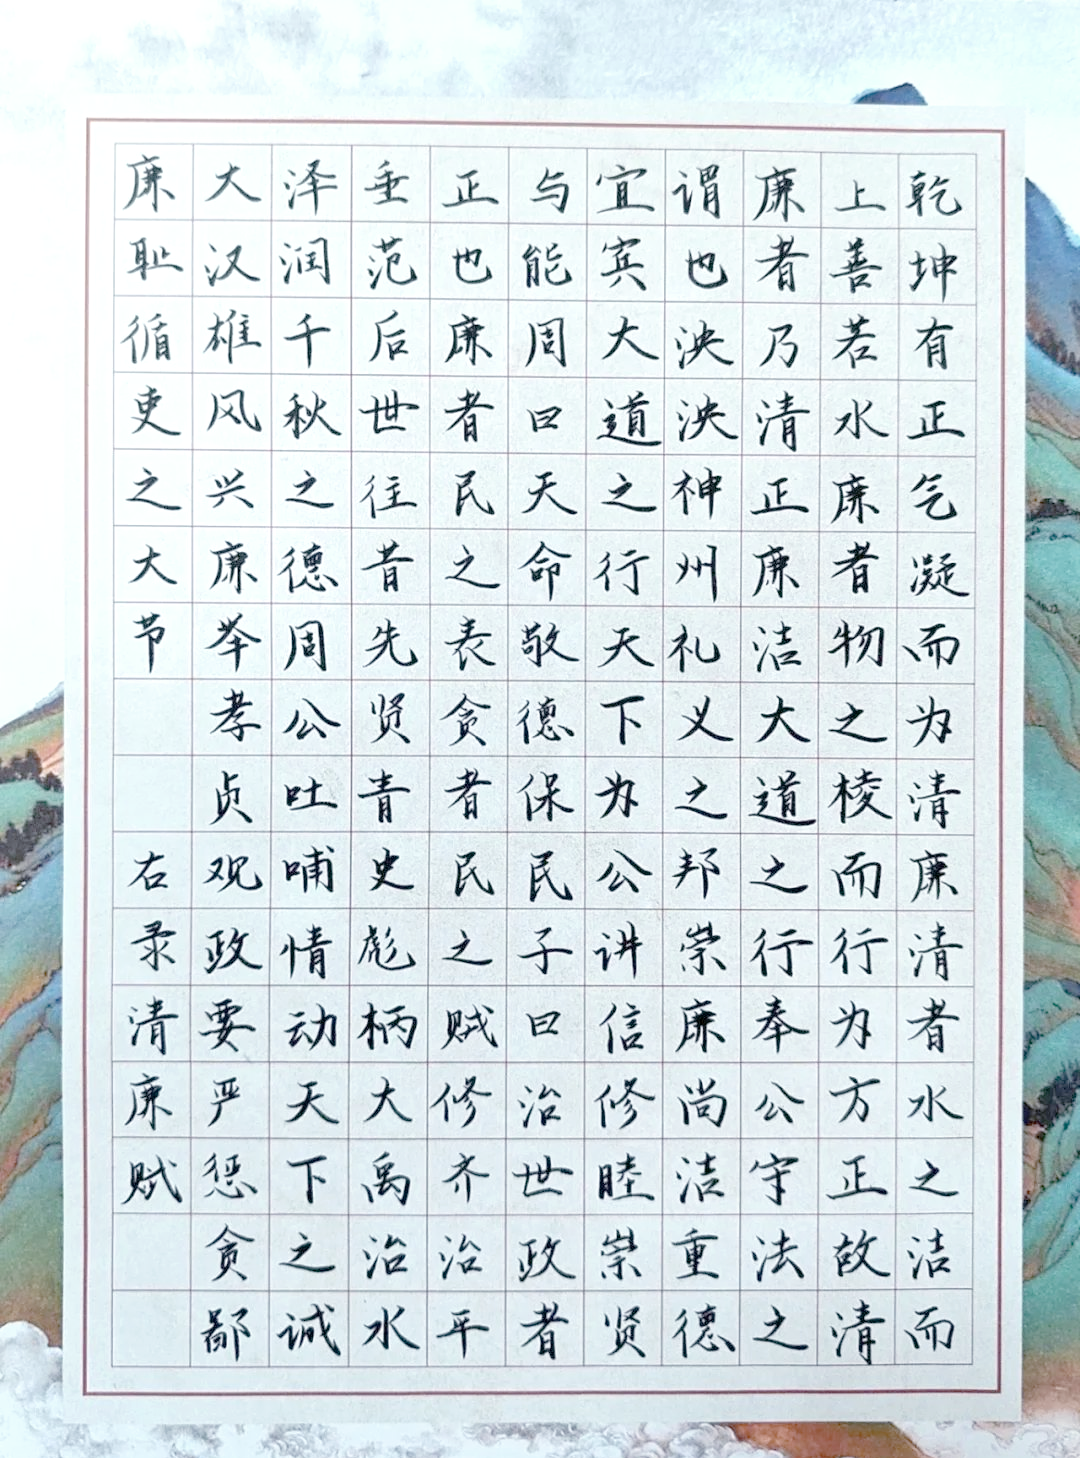 乾坤有正气凝而为清廉清者水之洁而
上善若水廉者物之棱而行为方正故清
廉者乃清正廉洁大道之行奉公守法之
谓也泱泱神州礼义之邦崇廉尚洁重德
宜宾大道之行天下为公讲信修睦崇贤
与能周曰天命敬德保民子曰治世政者
正也廉者民之表贪者民之贼修齐治平
垂范后世往昔先贤青史彪柄大禹治水
泽润千秋之德周公吐哺情动天下之诚
大汉雄风兴廉举孝贞观政要严惩贪鄙
廉耻循吏之大节
右录清廉赋